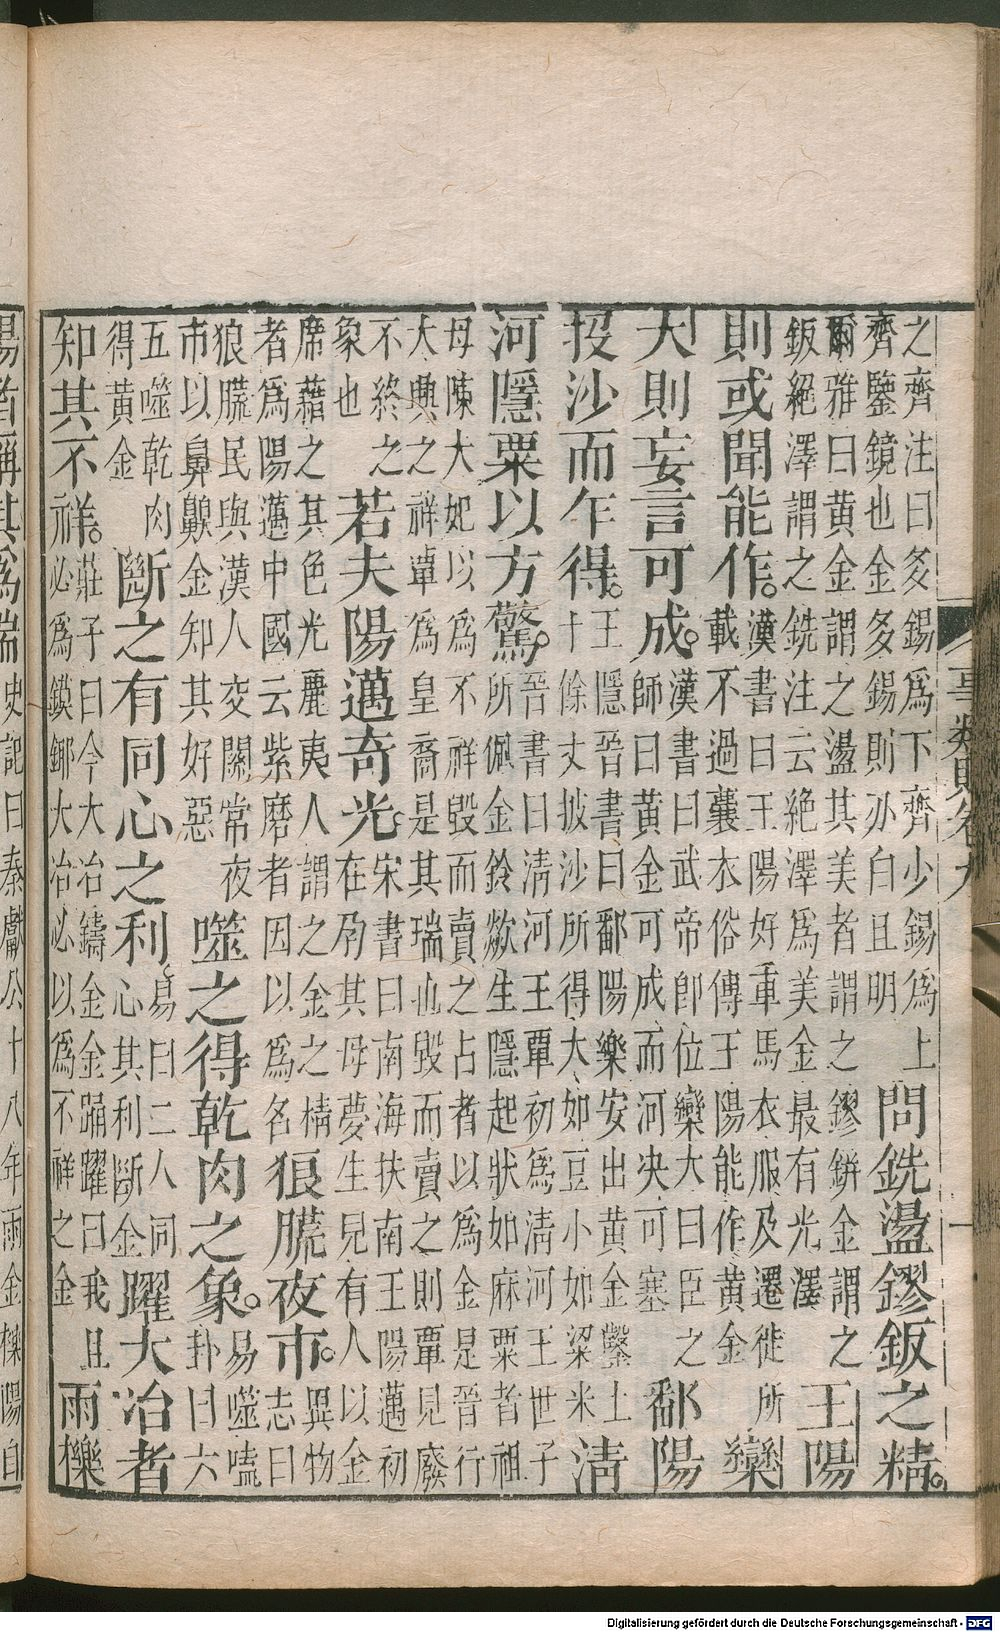 事類賦卷九　一
之齊注曰多錫爲下齊少錫爲上
齊鑒鏡也金多錫則刃白且明
問銑盪鏐鈑之精。
爾雅曰黃金謂之盪其美者謂之鏐鉼金謂之
鈑絕澤謂之銑注云絕澤爲美金最有光澤
王陽
則或聞能作。
漢書曰王陽好重馬衣服及遷徙所
載不過襄衣俗傳王陽能作黃金
欒
大則妄言可成。
漢書曰武帝卽位欒大曰臣之
師曰黃金可成而河决可塞
鄱陽
投沙而乍得。
王隱晉書曰鄱陽樂安出黃金鑿土
十餘丈披沙所得大如豆小如粱米
清
河隱粟以方驚。
晉書曰清河王覃初爲清河王世子
所佩金鈴歘生隱起狀如麻粟者祖
母陳大妃以爲不祥毀而賣之占者以爲金是晉行
大興之祥覃爲皇裔是其瑞也毀而賣之則覃見廢
不終之
象也
若夫陽邁奇光。
宋書曰南海扶南王陽邁初
在孕其母夢生見有人以金
席藉之其色光麗夷人謂之金之精
者爲陽邁中國云紫磨者因以爲名
狼䑋夜市。
異物
志曰
狼䑋民與漢人交關常夜
市以鼻齅金知其好惡
噬之得乾肉之象。
易噬嗑
卦曰六
五噬乾肉
得黃金
斷之有同心之利
易曰二人同
心其利斷金
躍大冶者
知其不祥。
莊子曰今大冶鑄金金踊躍曰我且
必爲鏌鎁大冶必以爲不祥之金
雨櫟
陽者稱其爲瑞
史記曰秦獻公十八年雨金櫟陽自
Digitalisierung gefördert durch die Deutsche Forschungsgemeinschaft - DFG